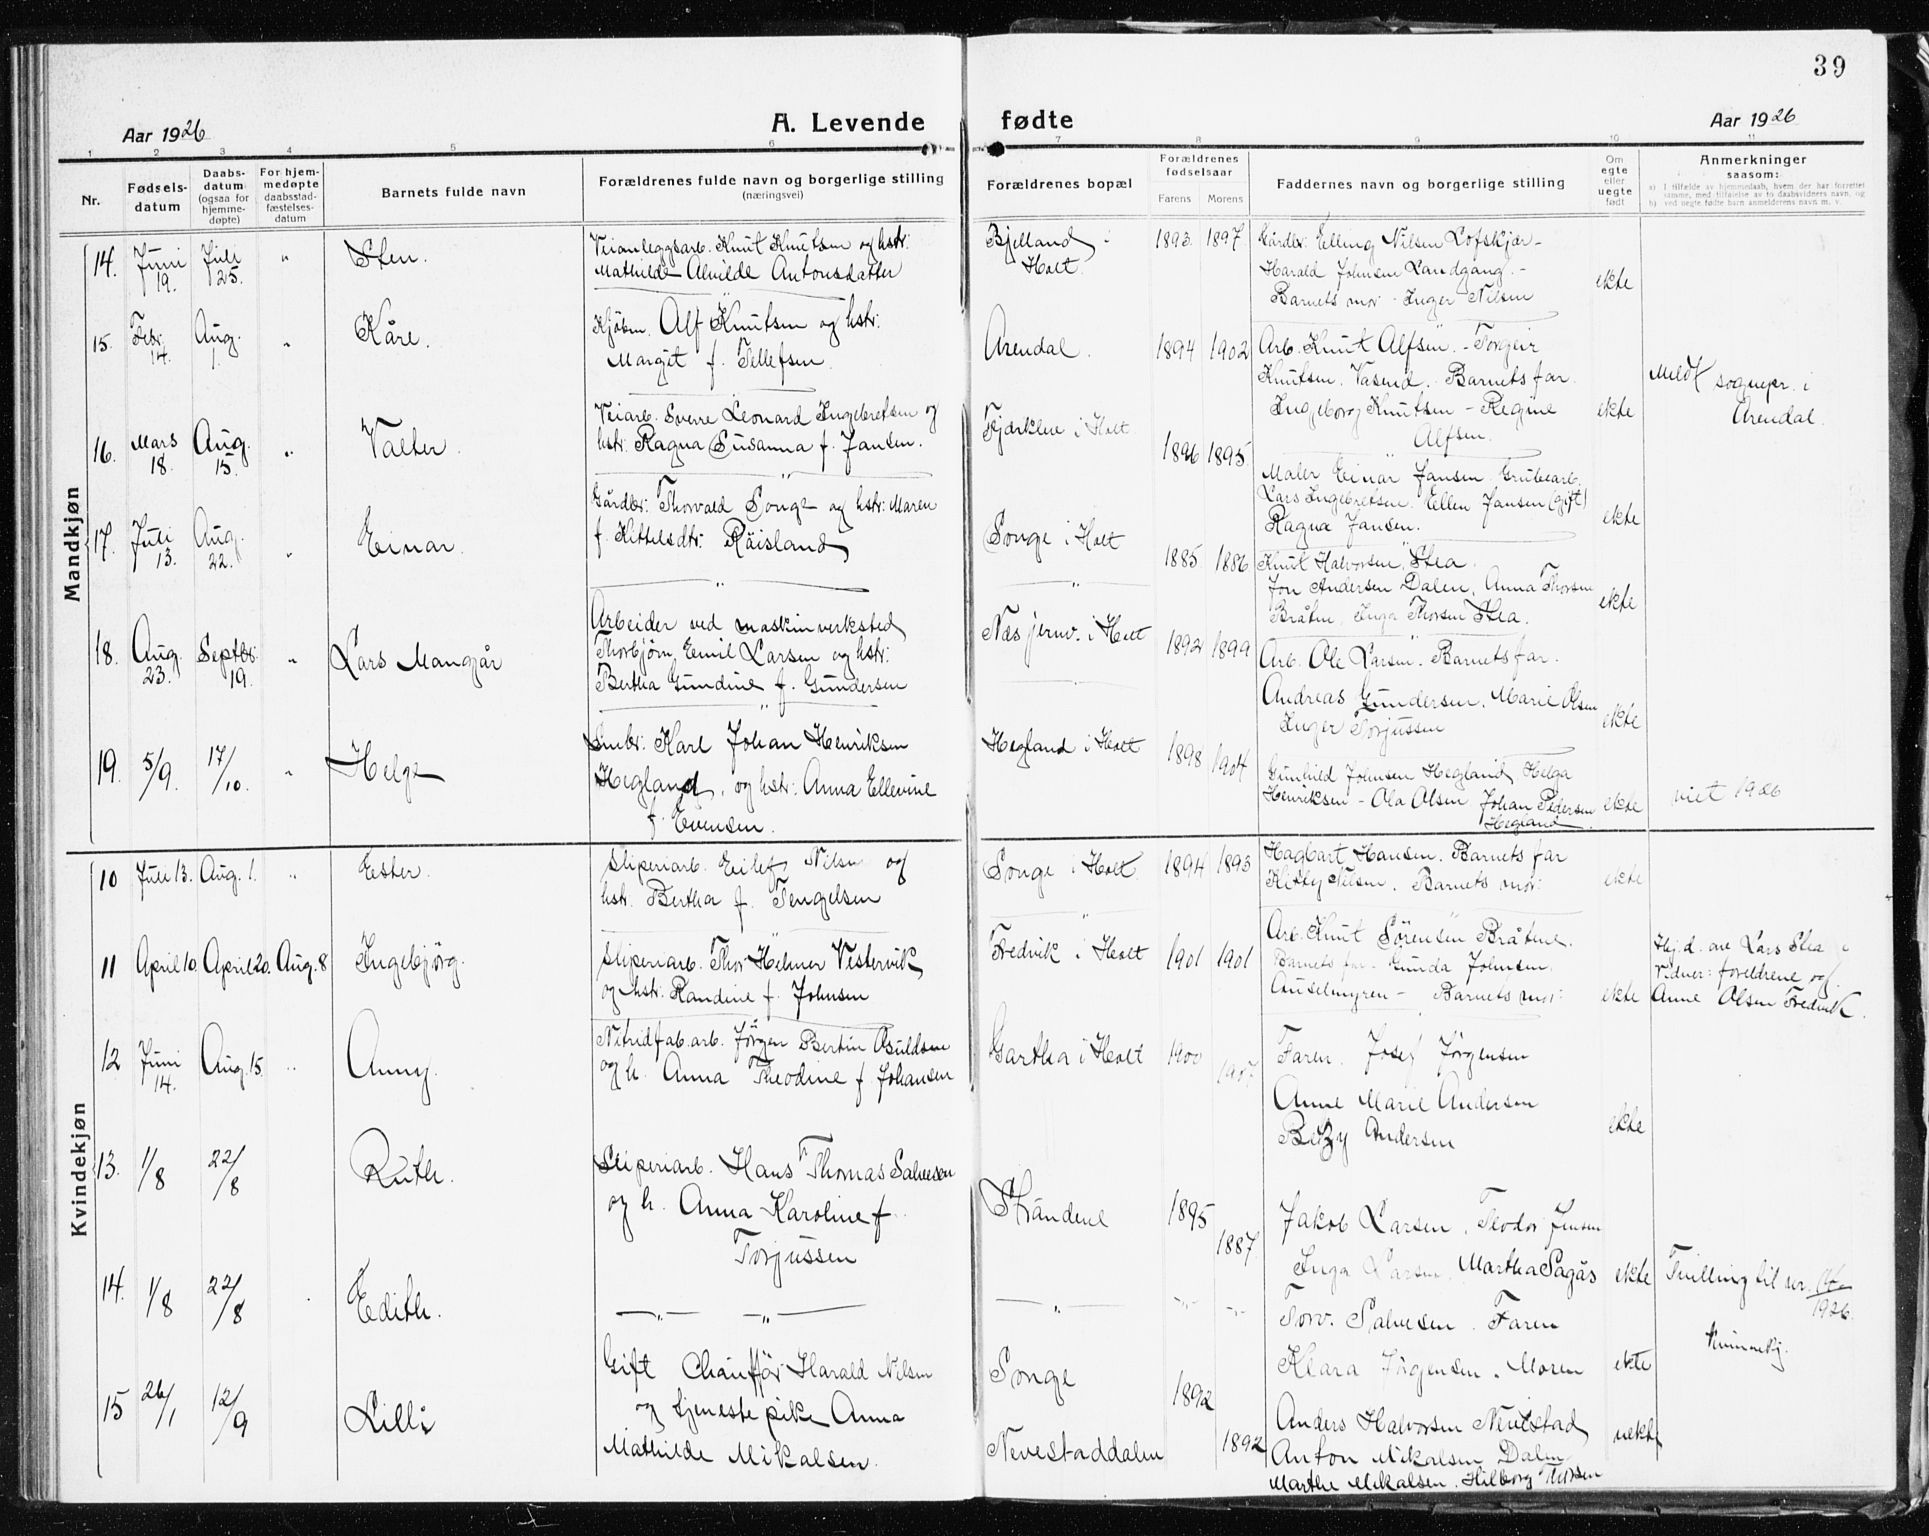 39
Aar 1926 A. Levende fødte Aar 1926
1 2 3 4 5 6 7 8 9 10 11
Nr.
Fødsels-
datum
Daabs-
datum
(ogsaa for
hjemme-
døpte)
For hjem-
medøpte
daabsstad-
fæstelses-
datum
Barnets fulde navn
Forældrenes fulde navn og borgerlige stilling
(næringsvei)
Forældrenes bopæl
Forældrenes
fødselsaar
Farens Morens
Faddernes navn og borgerlige stilling
Om
egte
eller
uegte
født
Anmerkninger
saasom:
a) I tilfælde av hjemmedaab, hvem der har forrettet
samme, med tilføielse av to daabsvidners navn, og
b) ved uegte fødte barn anmelderens navn m. v.
Mandkjøn
14. Juni 19. Juli 25. " Sten.
Veianleggsarb. Knut Knutsen og hstr.
Mathilde Alvilde Antonsdatter
Bjelland i
Holt.
1893. 1897.
Gårdbr. Elling Nilsen Lofskjær -
Harald Johnsen Landgang. -
Barnets mor - Inger Nilsen
ekte
15. Febr. 14. Aug. 1. " Kåre.
Kjøbm. Alf Knutsen og hstr:
Margit f. Tellefsen.
Arendal.
1894 1902
Arb. Knut Alfsen. - Torgeir
Knutsen. Vasend. Barnets far.
Ingeborg Knutsen - Regine
Alfsen.
ekte
Meldt sognepr. i
Arendal.
16. Mars 18. Aug. 15. " Valter.
Veiarb. Sverre Leonard Ingebretsen og
hstr. Ragna Susanna f. Jansen.
Fjærkleiv i Holt.
1896 1895.
Maler Einar Jansen, Grubearb.
Lars Ingebretsen. Ellen Jansen (gift)
Ragna Jansen.
ekte
17. Juli 13. Aug. 22. " Einar.
Gårdbr: Thorvald Songe og hstr: Maren
f. Kittelsdtr: Röisland
Songe i Holt
1885 1886
Knut Halvorsen, Stea.
Jon Andersen Dalen, Anna Thorsen
Bråten, Inga Thorsen Stea.
ekte
18. Aug. 23. Septbr: 19. " Lars Mangår
Arbeider ved maskinverksted
Thorbjørn Emil Larsen og hstr:
Bertha Gundine f. Gundersen
Næs jernv. i Holt
1892 1899
Arb. Ole Larsen. Barnets far.
Andreas Gundersen, Marie Olsen
Inger Torjussen
ekte
19. 5/9. 17/10. " Helge
Småbr: Karl Johan Henriksen
Hegland, og hstr: Anna Ellevine
f. Evensen.
Hegland i Holt
1898 1904
Gunhild Johnsen Hegland, Helga
Henriksen - Ola Olsen Johan Pedersen
Hegland
ekte
viet 1926
Kvindekjøn
10 Juli 13. Aug. 1. " Ester.
Sliperiarb. Eilef Nilsen og
hstr. Bertha f. Tengelsen
Songe i Holt.
1894 1893
Hagbart Hansen. Barnets far
Kitty Nilsen. Barnets mor:
ekte
11 April 10. April 20. Aug. 8 Ingebjørg.
Sliperiarb. Thor Helmer Vestervik
og hstr. Randine f. Johnsen
Fredvik i Holt
1901 1901
Arb. Knut Sörensen Bråtene.
Barnets far - Gunda Johnsen.
Auselmyren - Barnets mor:
ekte
Hj.d. av Lars Stea
Vidner: foreldrene og
Anne Olsen Fredvik.
12 Juni 14. Aug. 15. " Anny.
Nitridfab.arb. Jørgen Bertin Osuldsen
og h. Anna Theodine f Johansen
Gartha i Holt
1900 1907
Faren. Josef Jørgensen
Anne Marie Andersen
Betzy Andersen
ekte
13. 1/8 22/8 Ruth.
Sliperiarb. Hans Thomas Salvesen
og h. Anna Karoline f.
Torjussen
Strandene
1895 1887
Jakob Larsen. Teodor Jensen
Inga Larsen. Martha Sagås
ekte
Tvilling til nr. 14/1926.
14. 1/8 22/8 Edith.
— " — — " —
— " — -"- -"-
Torv. Salvesen. Faren
Klara Jörgensen. Moren
ekte
kvinnekj.
15 26/1 12/9 Lilli
Gift Chauffør Harald Nilsen
og tjenestepike Anna
Mathilde Mikalsen.
Songe
Nevestaddalen
1892 1892
Anders Halvorsen Nevestad
Anton Mikalsen Dalen
Marthe Mikalsen. Hilborg Thorsen
uekte